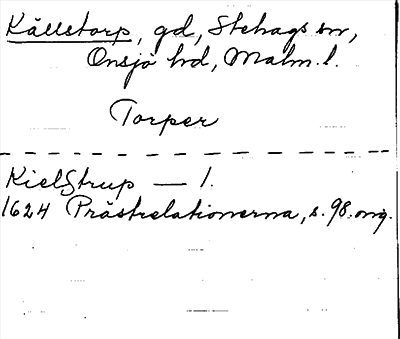 Källstorp, gd, Stehags sn,
Onsjö hd, Malm. l.
Torper
KielStrup — 1.
1624 Prästrelationerna, s. 98. omg.